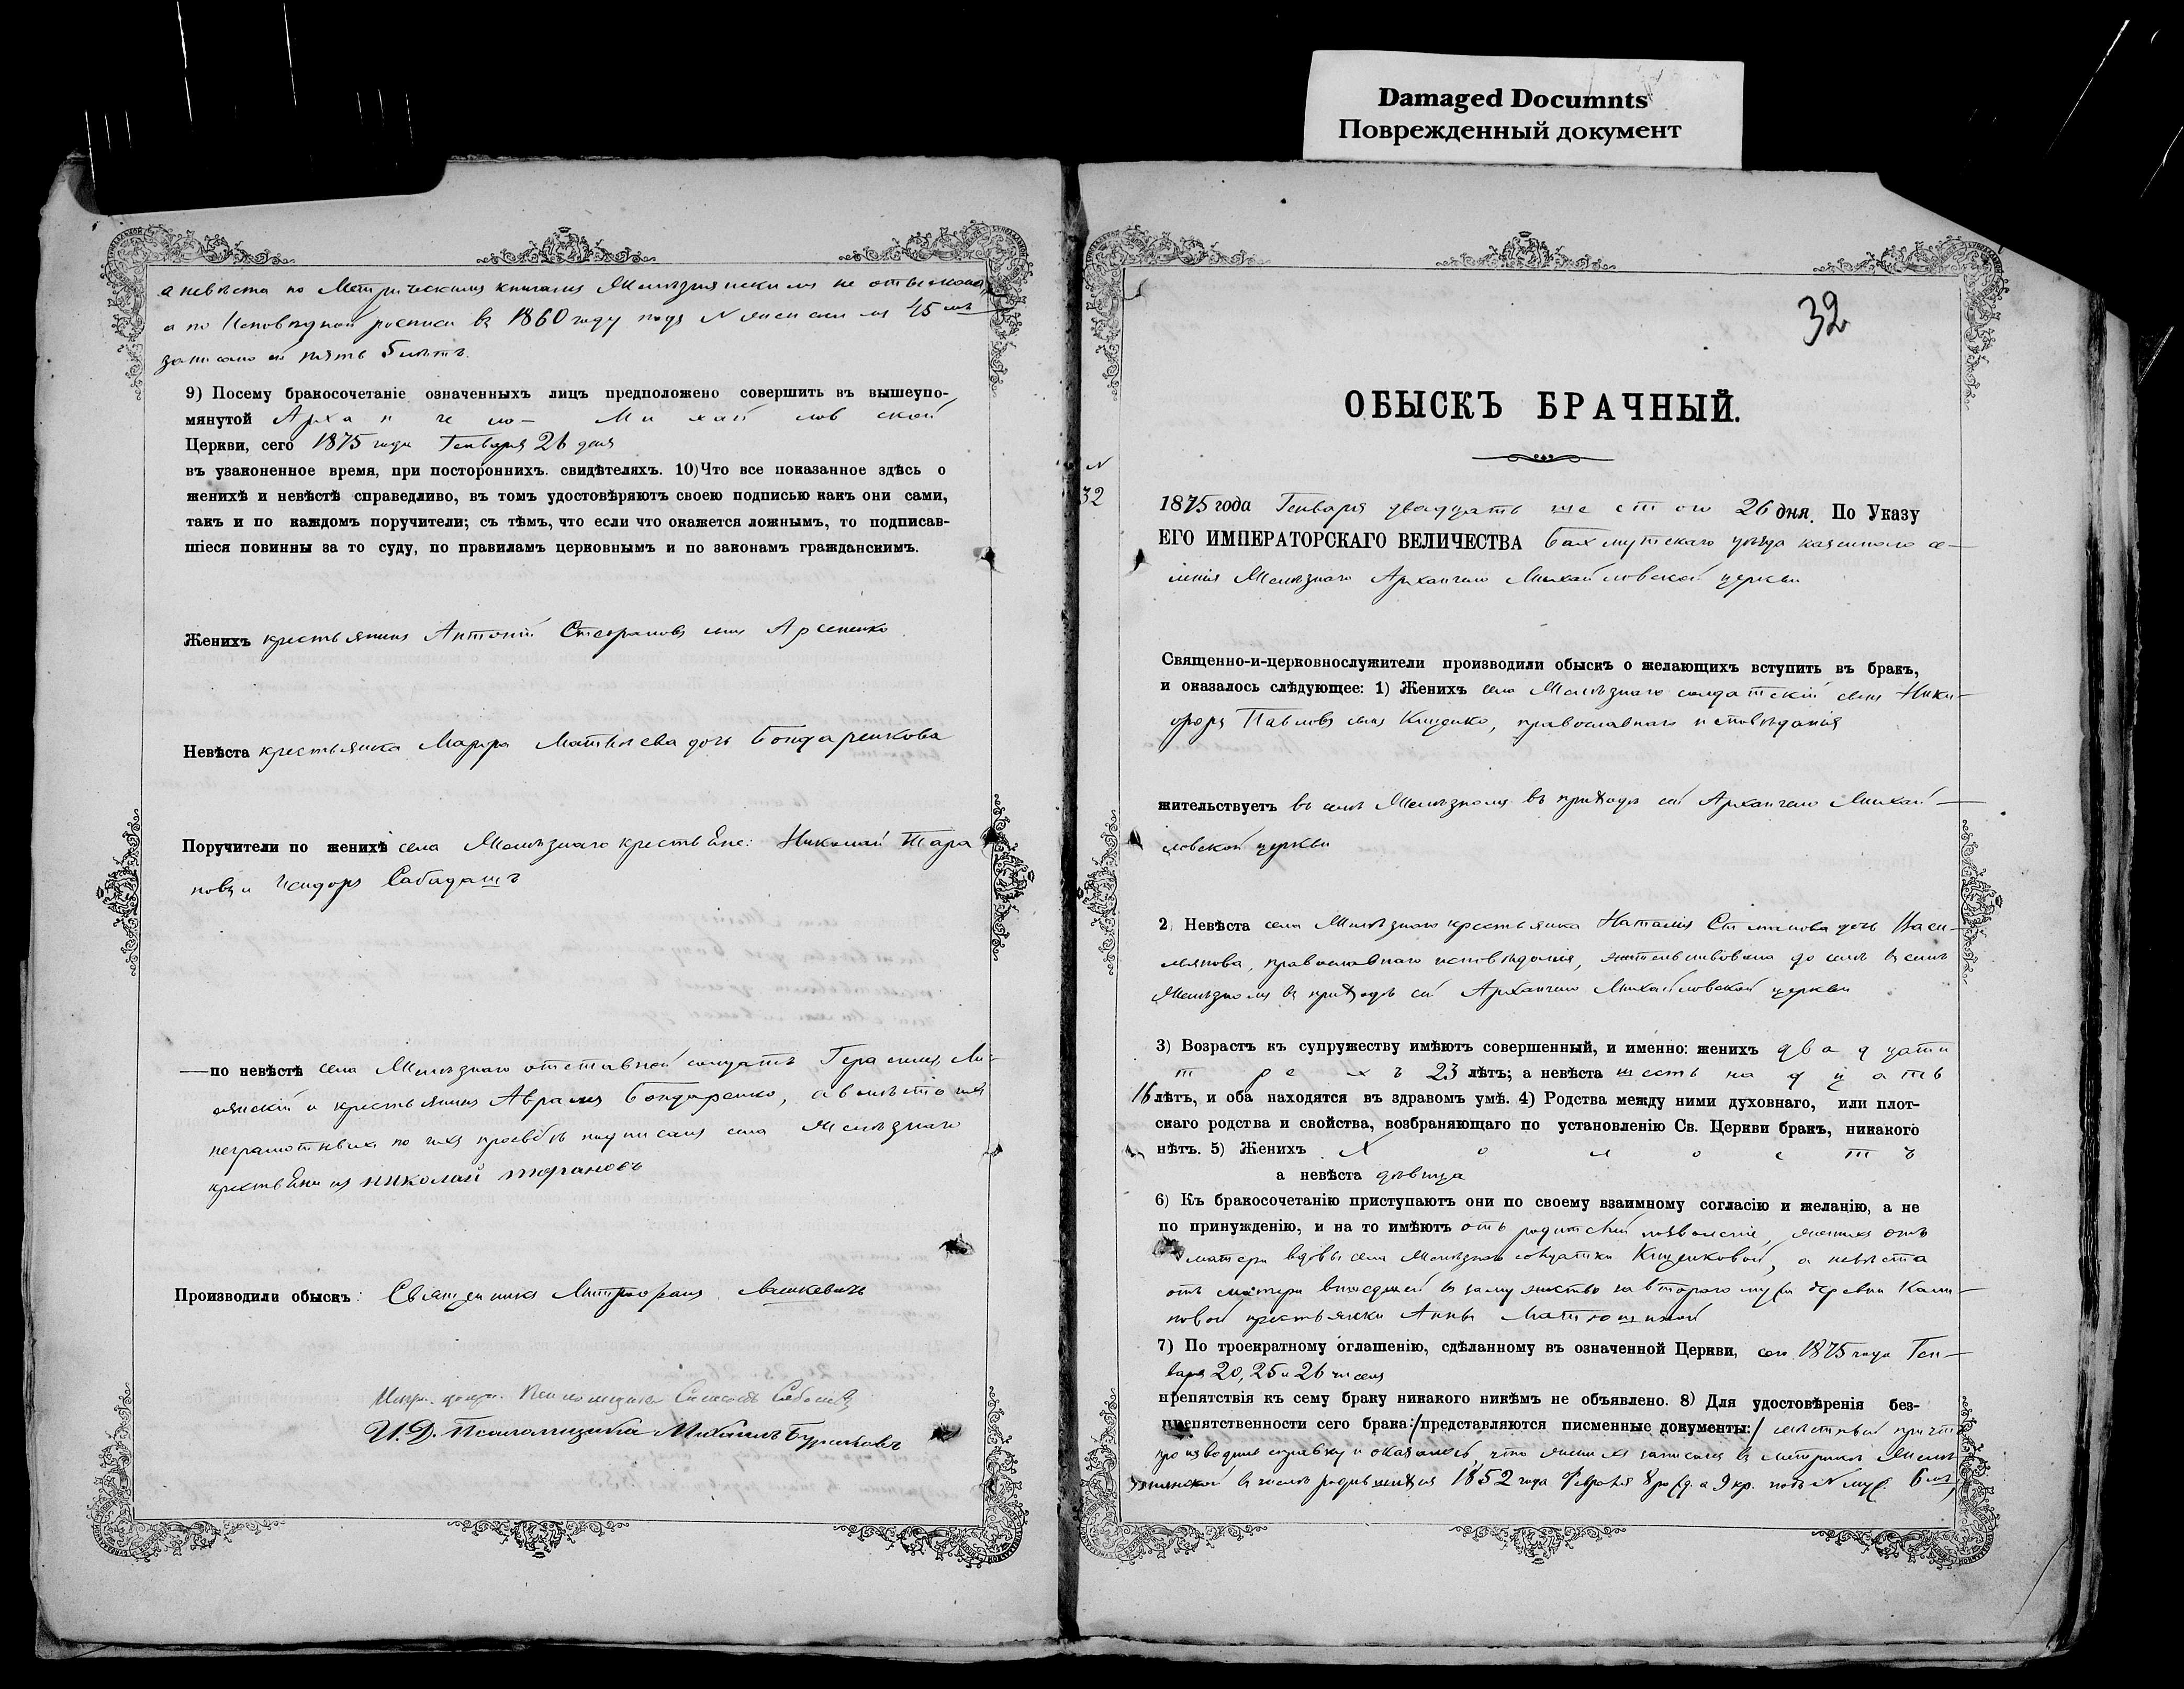 Damaged Documnts
Поврежденный документ
а невѣста по Метрическимъ книгамъ Желѣзнянскимъ не отыскана,
а по Исповѣдной росписи въ 1860 году подъ N 45 мъ
записано ей пять 5 лѣтъ.
9) Посему бракосочетаніе означенныхъ лицъ предположено совершить въ вышеупо-
мянутой Архангело-Михайловской
Церкви, сего 1875 года Генваря 26 дня
въ узаконенное время, при постороннихъ свидѣтеляхъ. 10) Что все показанное здѣсь о
женихѣ и невѣстѣ справедливо, въ томъ удостовѣряютъ своею подписью какъ они сами,
такъ и по каждомъ поручители; съ тѣмъ, что если что окажется ложнымъ, то подписав-
шіеся повинны за то суду, по правиламъ церковнымъ и по законамъ гражданскимъ.
Женихъ крестьянинъ Антоній Стефановъ сынъ Арсенко
Невѣста крестьянка Марфа Матвѣева дочь Бондаренкова
Поручители по женихѣ села Желѣзнаго крестьяне: Николай Тара
новъ и Исидоръ Сабадашъ
— по невѣстѣ села Желѣзнаго отставной солдатъ Герасимъ
и крестьянинъ Аврамъ Бондаренко, а вмѣсто ихъ
неграмотныхъ по ихъ просьбѣ подписался села Желѣзнаго
крестьянинъ николай тарановъ
Производили обыскъ: Священникъ Митрофанъ Лашкевичъ
И. Д. Псаломщика Михаилъ
32
ОБЫСКЪ БРАЧНЫЙ.
N
32
1875 года Генваря двадцать шестого 26 дня. По Указу
ЕГО ИМПЕРАТОРСКАГО ВЕЛИЧЕСТВА Бахмутскаго уѣзда казеннаго се-
ленія Желѣзнаго Архангело Михайловской церкви
Священно-и-церковнослужители производили обыскъ о желающихъ вступить въ бракъ,
и оказалось слѣдующее: 1) Женихъ села Желѣзнаго солдатскій сынъ Ники-
форъ Павловъ сынъ православнаго исповѣданія
жительствуетъ въ селѣ Желѣзномъ въ приходѣ сей Архангело Михай-
ловской церкви
2) Невѣста села Желѣзнаго крестьянка Наталія дочь Васи-
льянова, православнаго исповѣданія, жительствовала до селѣ въ селѣ
Желѣзномъ въ приходѣ сей Архангело Михайловской церкви
3) Возрастъ къ супружеству имѣютъ совершенный, и именно: женихъ двадцати
трехъ 23 лѣтъ; а невѣста шестьнадцать
16 лѣтъ, и оба находятся въ здравомъ умѣ. 4) Родства между ними духовнаго, или плот-
скаго родства и свойства, возбраняющаго по установленію Св. Церкви бракъ, никакого
нѣтъ. 5) Женихъ Холостъ
а невѣста дѣвица
6) Къ бракосочетанію приступаютъ они по своему взаимному согласію и желанію, а не
по принужденію, и на то имѣютъ отъ родителей позволеніе, женихъ отъ
матери вдовы села Желѣзнаго солдатки а невѣста
отъ матери вышедшей въ замужество за втораго мужа деревни Кали-
новой крестьянки Анны
7) По троекратному оглашенію, сдѣланному въ означенной Церкви, сего 1875 года Ген-
варя 20, 25 и 26 чиселъ
препятствія къ сему браку никакого никѣмъ не объявлено. 8) Для удостовѣренія без-
препятственности сего брака:/представляются писменные документы:/ мѣстный причтъ
производилъ справку и оказалось, что женихъ записанъ въ метрикѣ Желѣ
знянской въ числѣ родившихся 1852 года Февраля 8 рожд. а 9 кр. подъ N муж. 6 мъ,